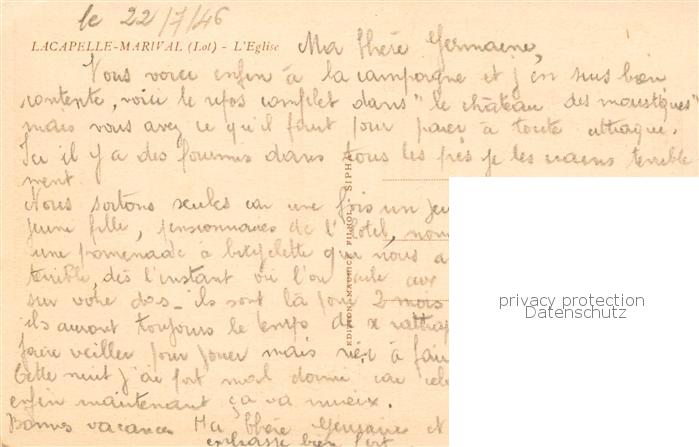 le 22/7/46
LACAPELLE-MARIVAL (Lot) - L'Eglise
Ma Chère Germaine,
Nous voici enfin à la campagne et j'en suis bien
contente, voici le repos complet dans "le château des moustiques"
mais nous avons ce qu'il faut pour parer à toute attaque.
Ici il y a des fourmis dans tous les prés je les crains terrible
ment
Nous sortons seules car une fois un jeu
jeune fille, pensionnaires de l'hôtel, nou
une promenade à bicyclette qui nous a
terrible, dès l'instant où l'on aux
sur votre dos - ils sont là pour 2 mois
ils auront toujours le temps de rattrap
faire veiller pour jouer mais rien à fai
Cette nuit j'ai fort mal dormi car cel
enfin maintenant ça va mieux.
Bonnes vacances Ma Chère Germaine et
embrasse bien fort
EDITION MAURICE FILHOL - SIPHA
privacy protection
Datenschutz